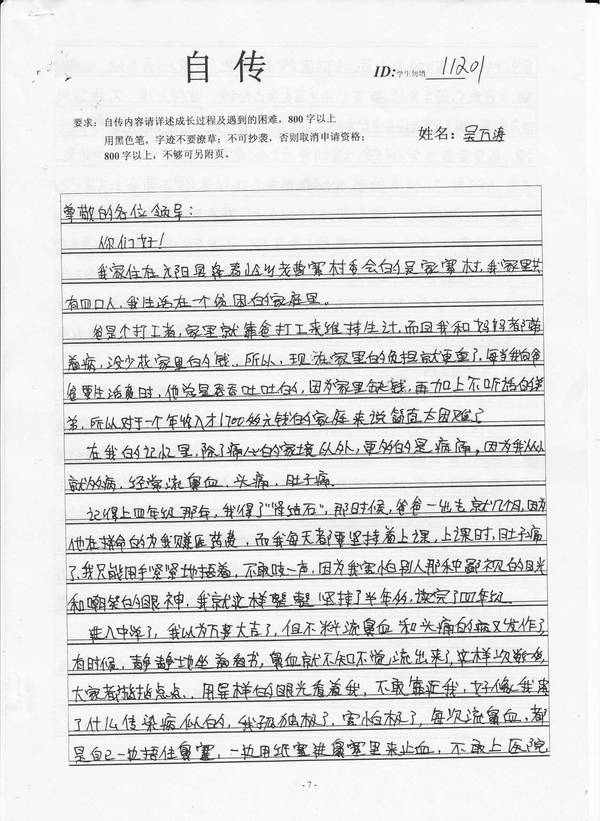 自传
ID:学生勿填 11201
要求：自传内容请详述成长过程及遇到的困难，800字以上
用黑色笔，字迹不要潦草；不可抄袭，否则取消申请资格；
800字以上，不够可另附页。
姓名：吴万海
尊敬的各位领导：
你们好！
我家住在元阳县逢春岭乡老曹寨村委会白仴家寨村，我家里共
有四口人，我生活在一个贫困的家庭里。
爸是个打工者，家里就靠爸打工来维持生计，而因我和妈妈都带
着病，没少花家里的钱。所以，现在家里的负担就更重了，每当我向爸
爸要生活费时，他总是吞吞吐吐的，因为家里缺钱，再加上不听话的弟
弟，所以对于一个年收入才1700多元钱的家庭来说简直太困难了
在我的记忆里，除了痛心的家境以外，更多的是病痛。因为我从小
就多病，经常流鼻血、头痛、肚子痛。
记得上四年级那年，我得了“肾结石”，那时候，爸爸一出去就几个月，因为
他在拼命的为我赚医药费，而我每天都要坚持着上课，上课时，肚子痛
了，我只能用手紧紧地捂着，不敢吱一声，因为我害怕别人那种鄙视的目光
和嘲笑的眼神，我就这样整整坚持了半年多，读完了四年级
进入中学了，我以为万事大吉了，但不料流鼻血和头痛的病又发作了，
有时候，静静地坐着看书，鼻血就不知不觉流出来了，这样次数多，
大家都指指点点，用异样的眼光看着我，不敢靠近我，好像我患
了什么传染病似的，我孤独极了，害怕极了，每次流鼻血，都
是自己一边捂住鼻塞，一边用纸塞进鼻塞里来止血，不敢上医院
- 7 -